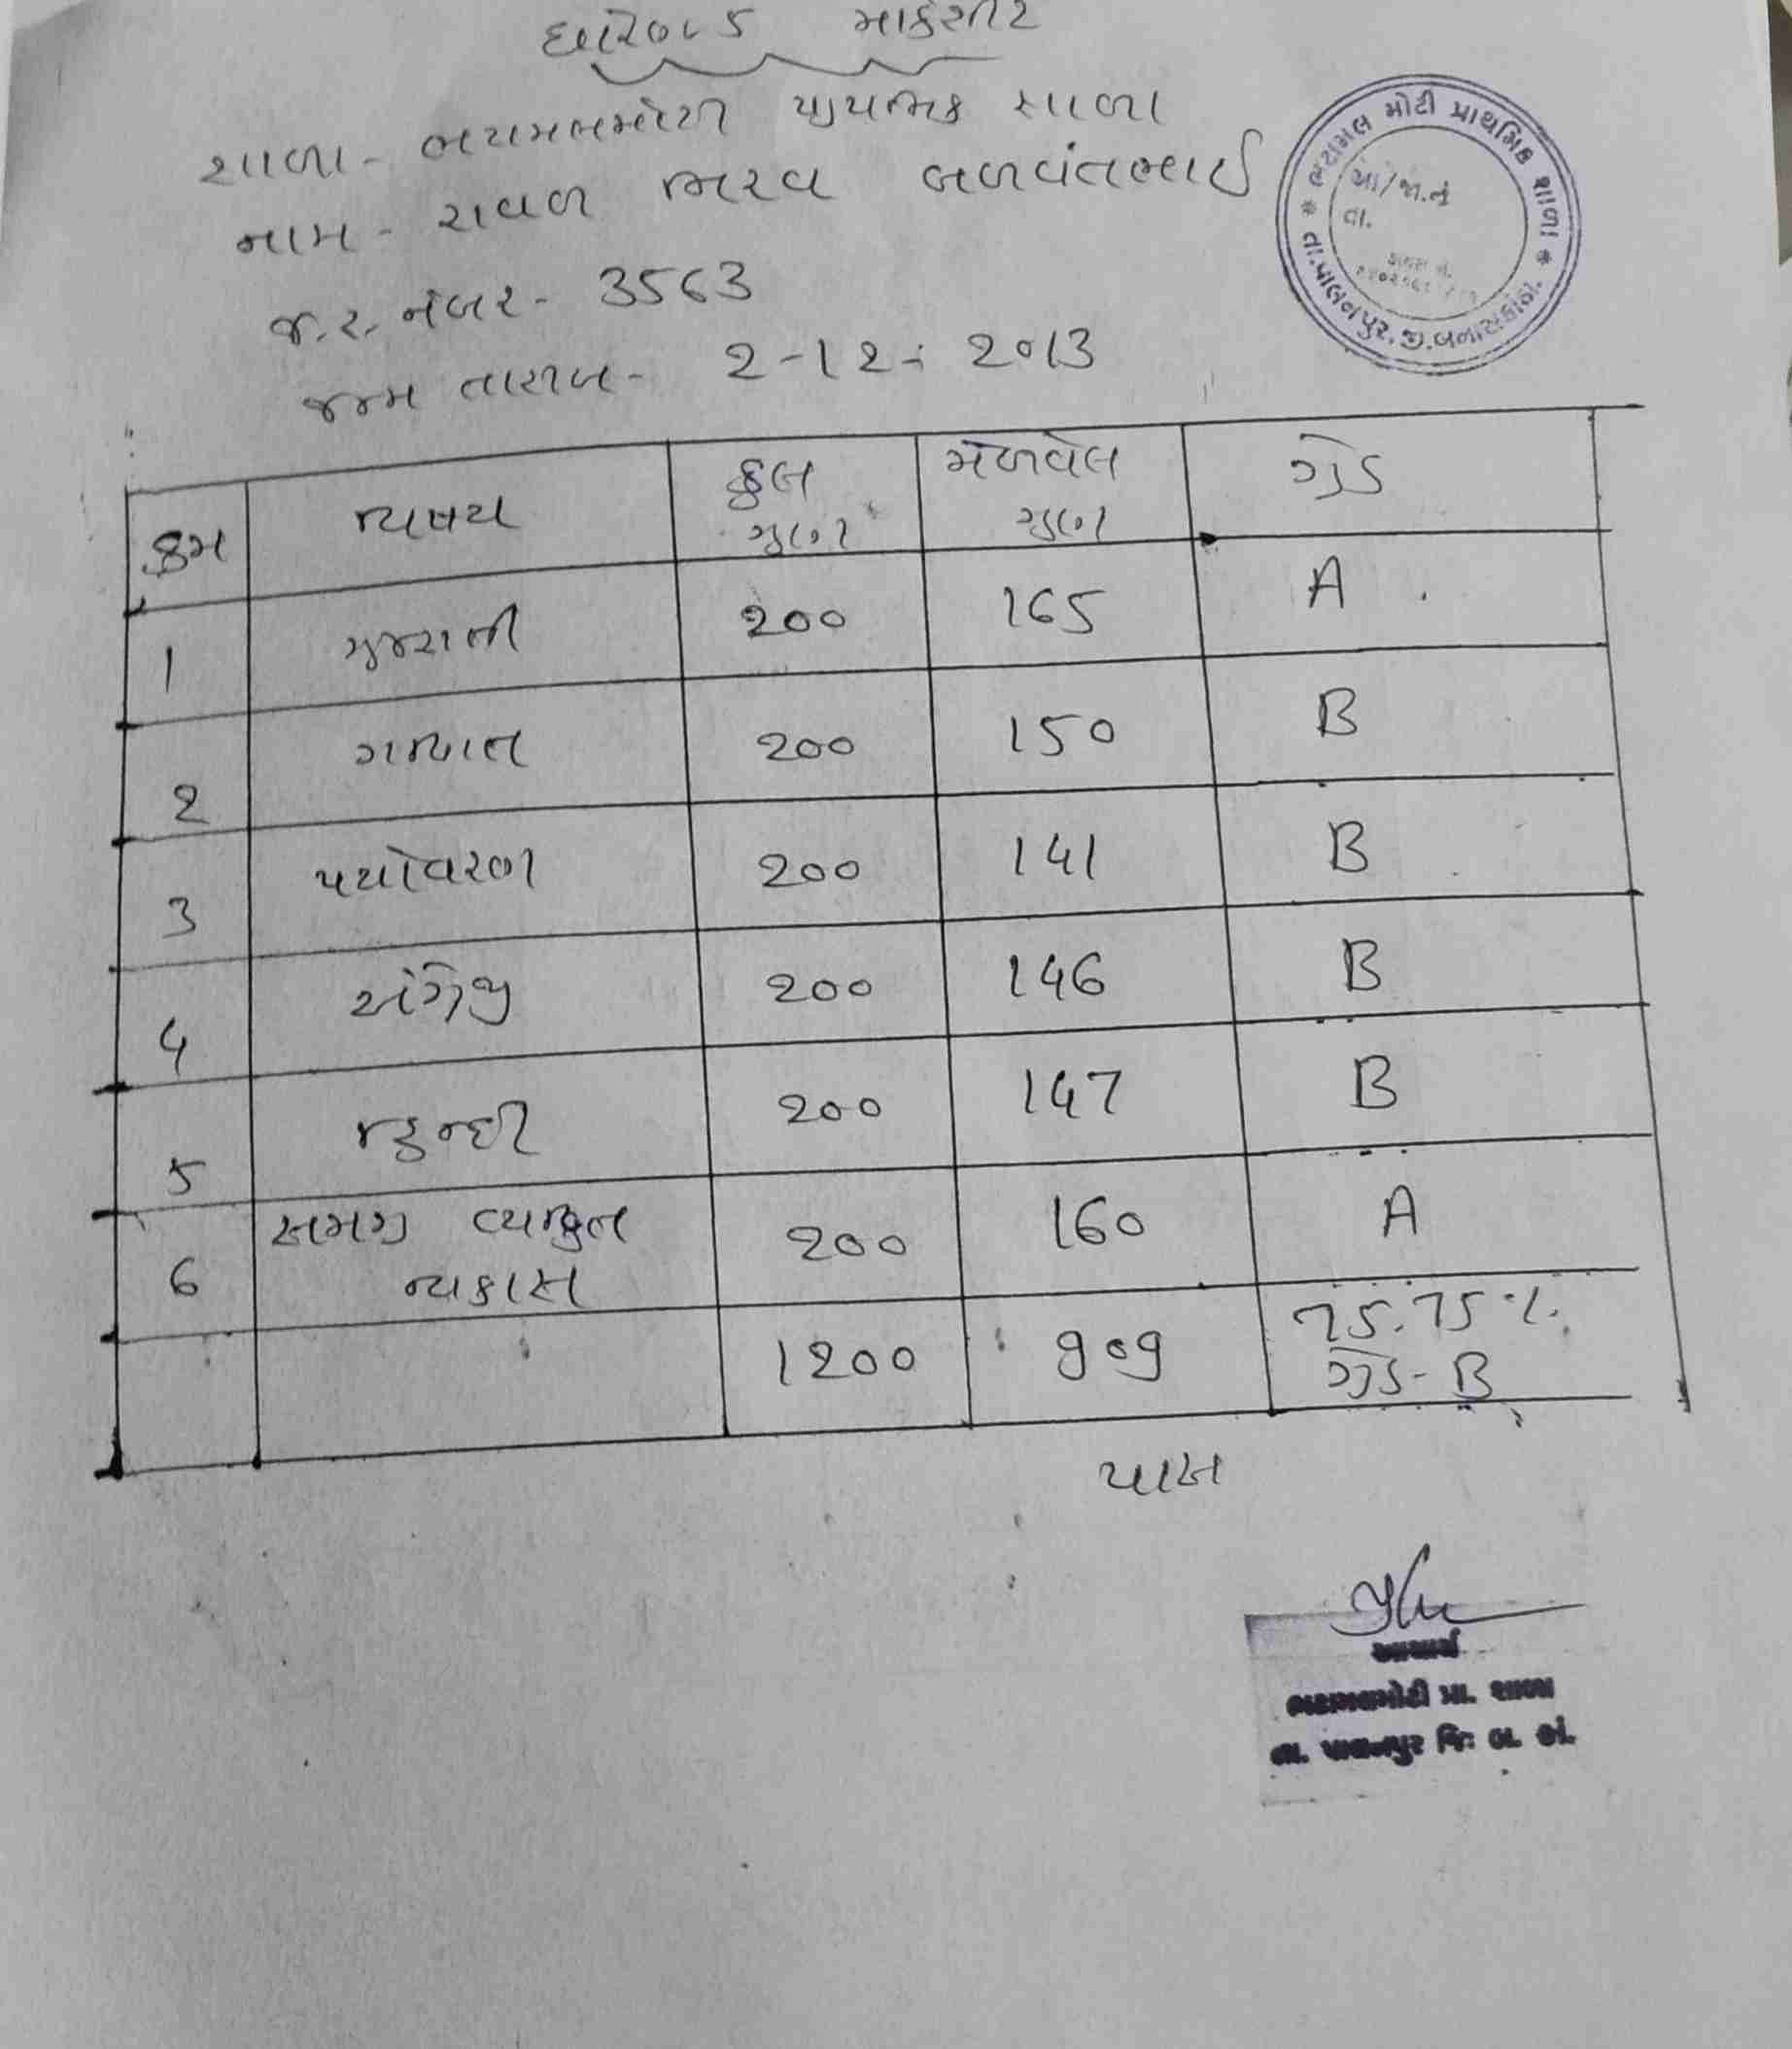 ધોરણ - 5 માર્કશીટ
શાળા - ભટામલમોટી પ્રાથમિક શાળા
નામ - રાવળ ભરવ બળવંતભાઈ
જ.ર. નંબર - 3563
જન્મ તારીખ - 2-12-2013
ભટામલ મોટી પ્રાથમિક શાળા
આ/જા.નં
તા.
તા.પાલનપુર, જી.બનાસકાંઠા.
ક્રમ વિષય કુલ ગુણ મેળવેલ ગુણ ગ્રેડ
1 ગુજરાતી 200 165 A
2 ગણિત 200 150 B
3 પર્યાવરણ 200 141 B
4 અંગ્રેજી 200 146 B
5 હિન્દી 200 147 B
6 સમગ્ર વ્યક્તિત્વ વિકાસ 200 160 A
1200 909 75.75 %.
ગ્રેડ - B
પાસ
આચાર્ય
ભટામલમોટી પ્રા. શાળા
તા. પાલનપુર જિ: બ. કાં.